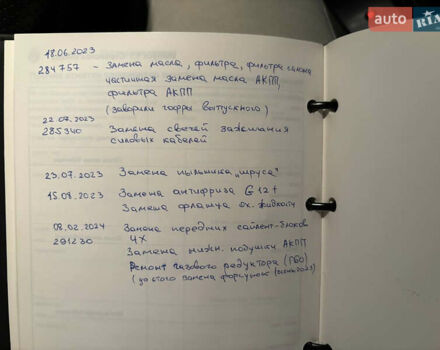 auto RIA
18.06.2023
284757 - Замена масла, фильтра, фильтра салона
частичная замена масла АКПП,
фильтра АКПП
(заварили гофры выпускного)
22.07.2023
285340 Замена свечей зажигания
силовых кабелей
23.07.2023 Замена пыльника "шруса"
15.08.2023 Замена антифриза G12+
Замена фланца ох. жидкости
08.02.2024 Замена передних сайлент-блоков
291230 ЧХ
Замена нижн. подушки АКПП
Ремонт газового редуктора (ГБО)
(до этого замена форсунок